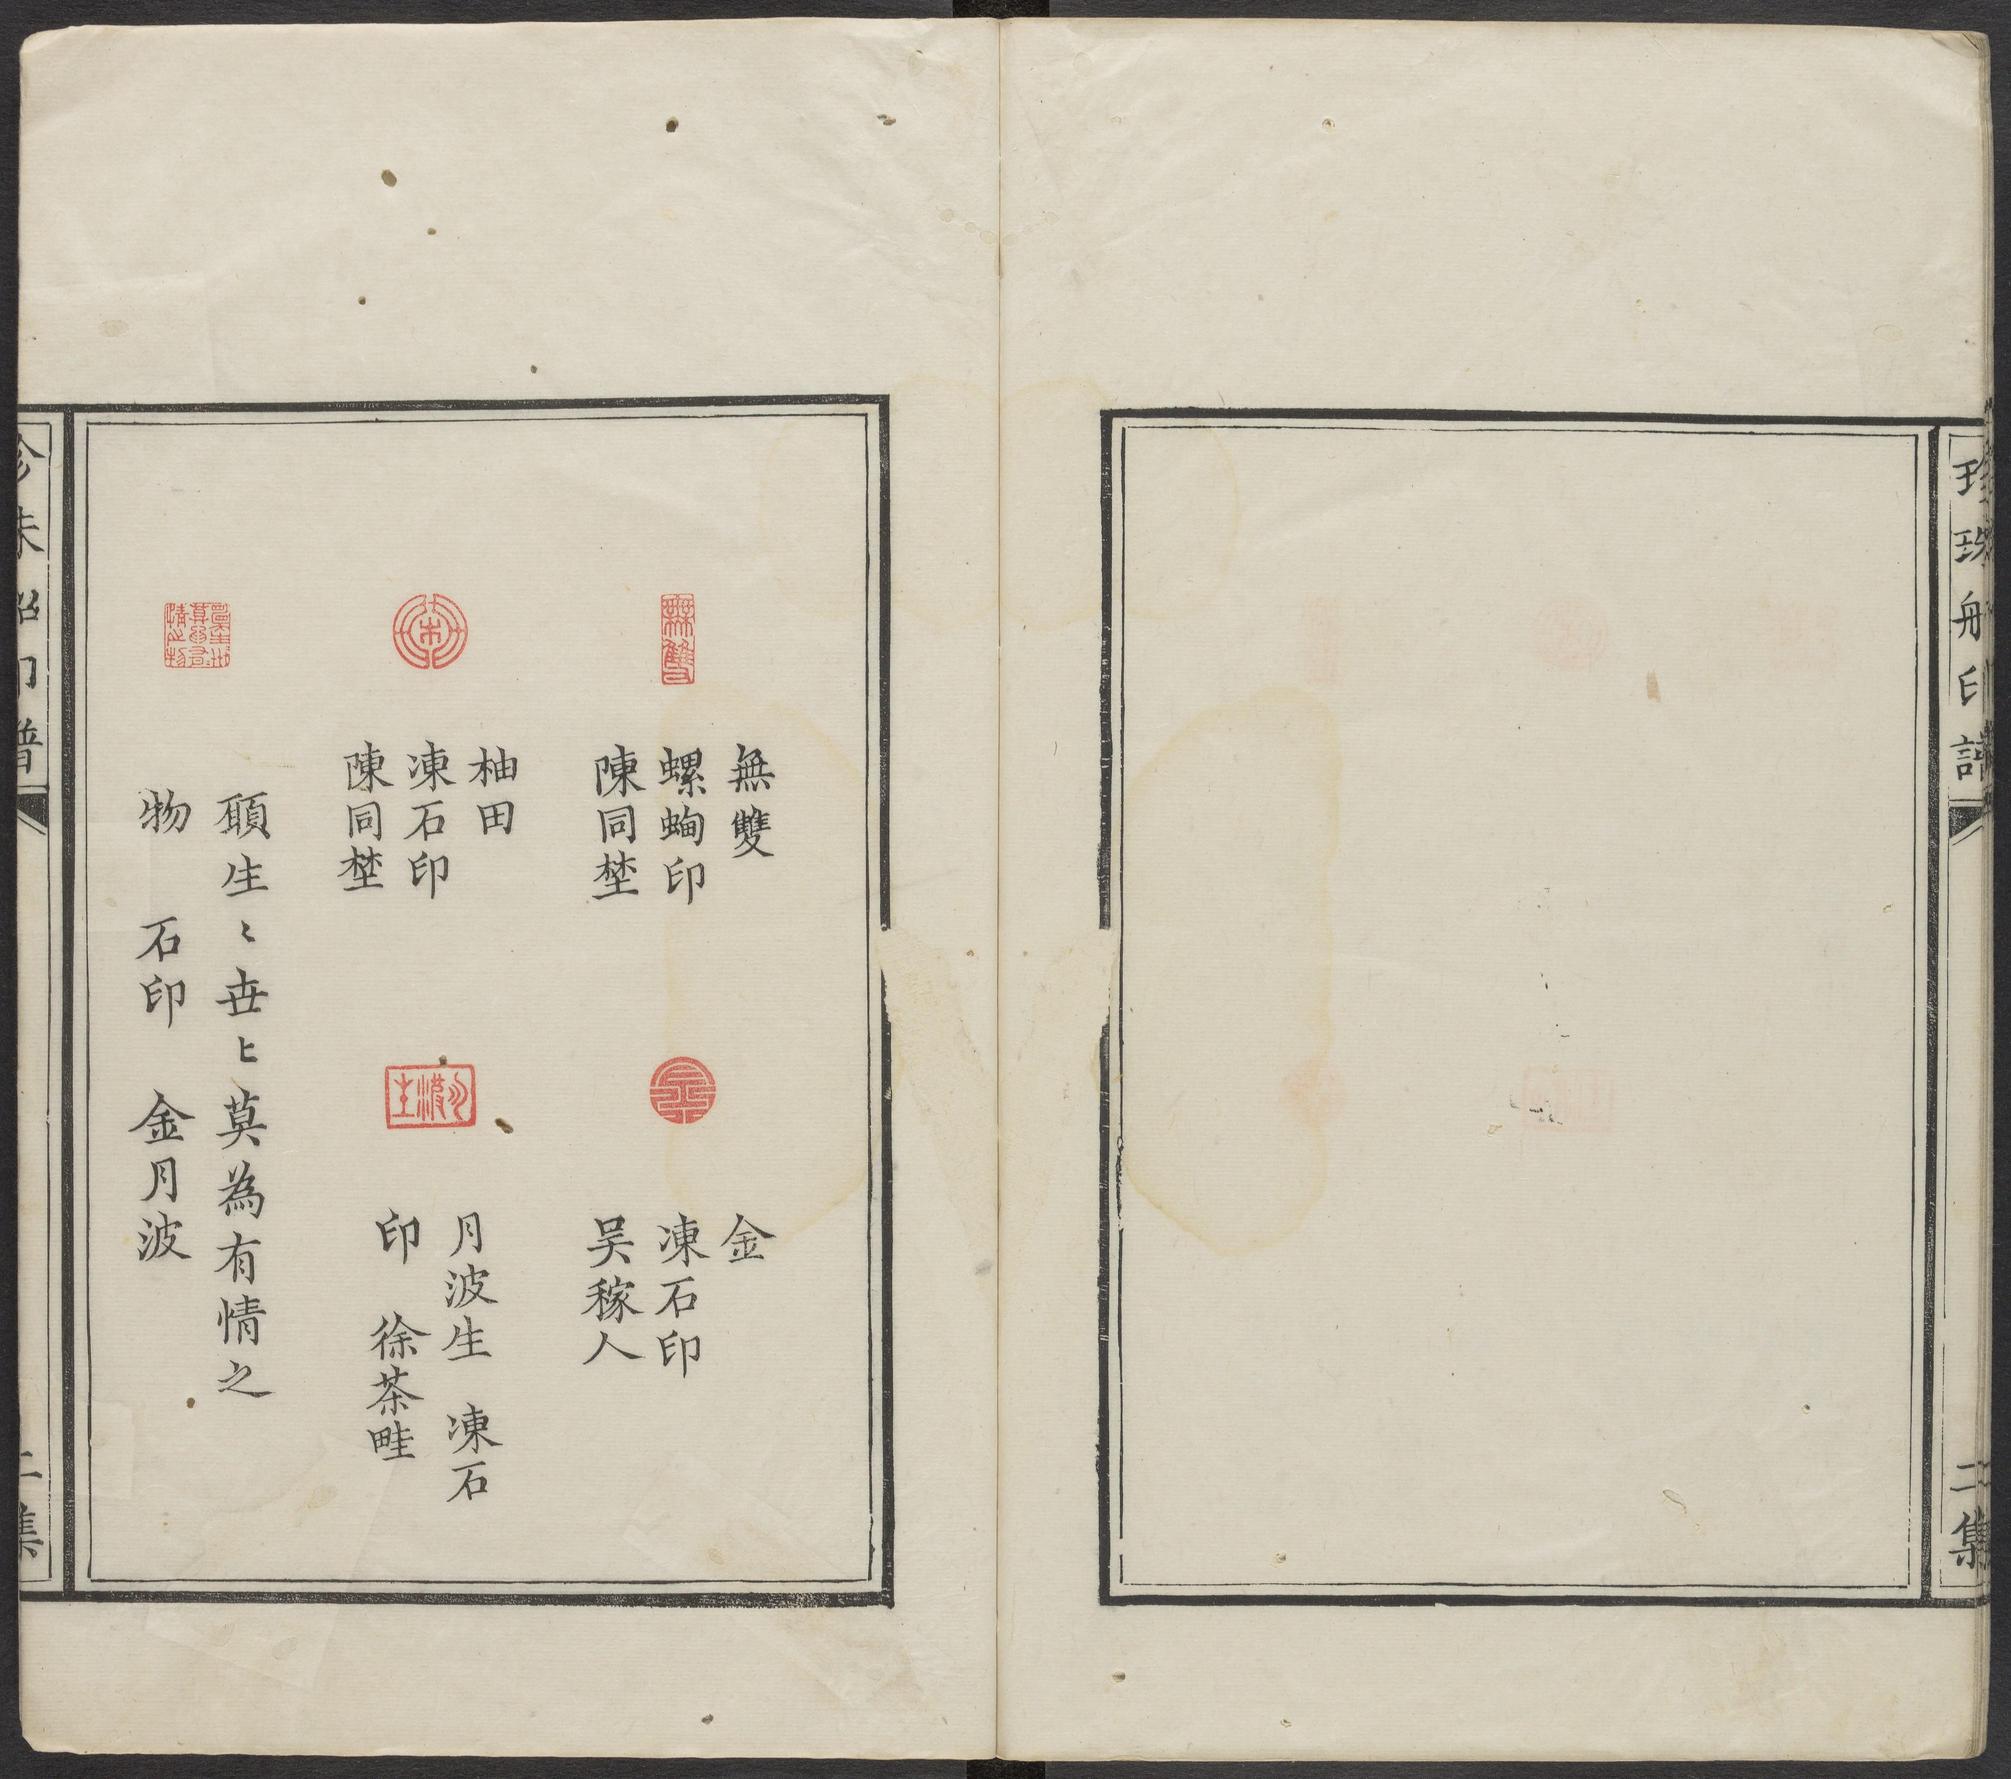 珍珠船印譜
二集
無雙
螺蚫印
陳同埜
金
凍石印
吴稼人
柚田
凍石印
陳同埜
月波生 凍石
印 徐茶畦
願生〻世〻莫為有情之
物 石印 金月波
珍珠船印譜
二集